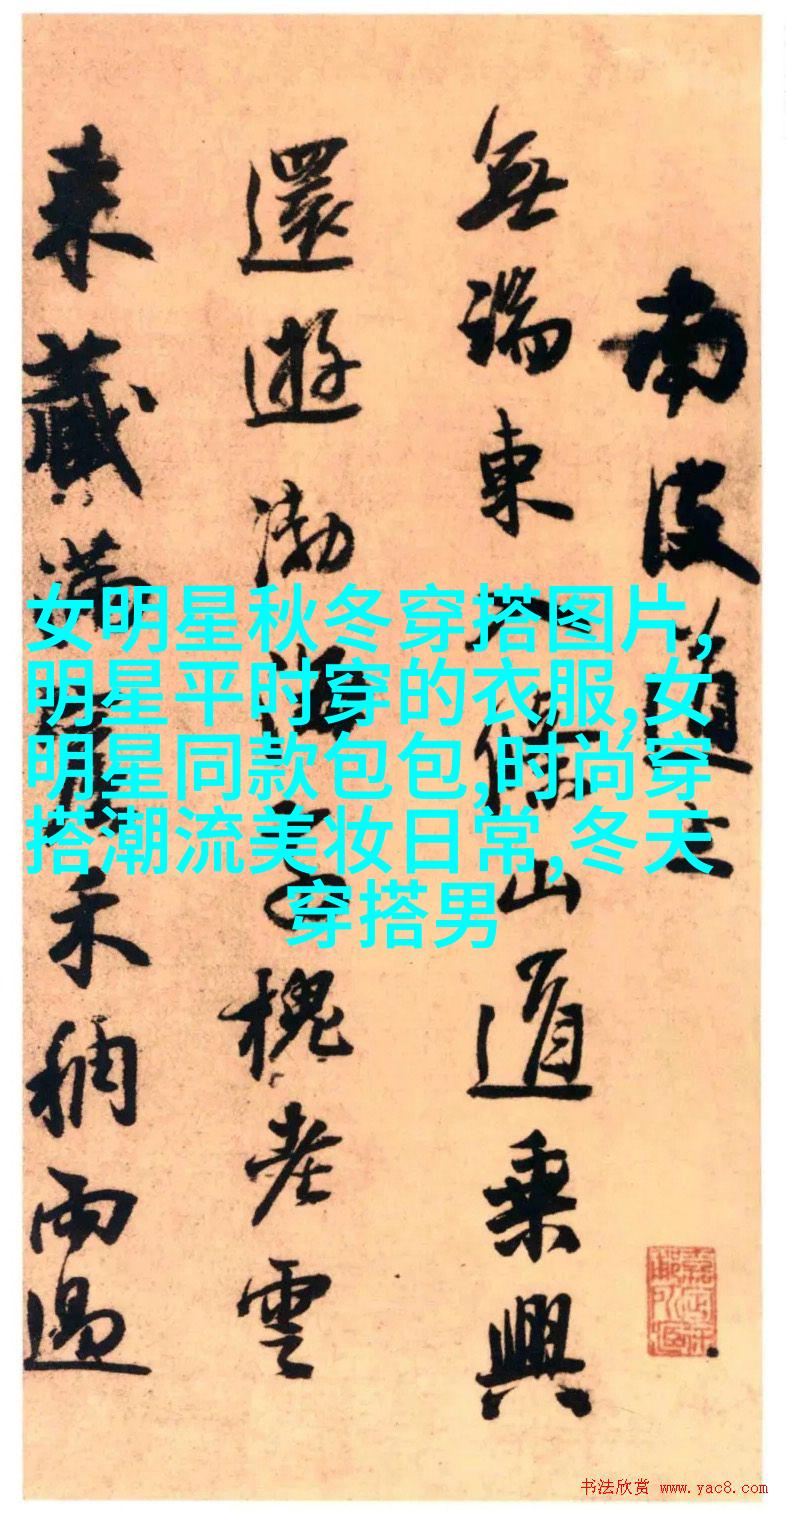 南皮道上
無端東入條山道乘興
還遊渤海槐老雲
來藏滿禾稠雨過
女明星秋冬穿搭图片,
明星平时穿的衣服,女
明星同款包包,时尚穿
搭潮流美妆日常,冬天
穿搭男
书法欣赏 www.yac8.com